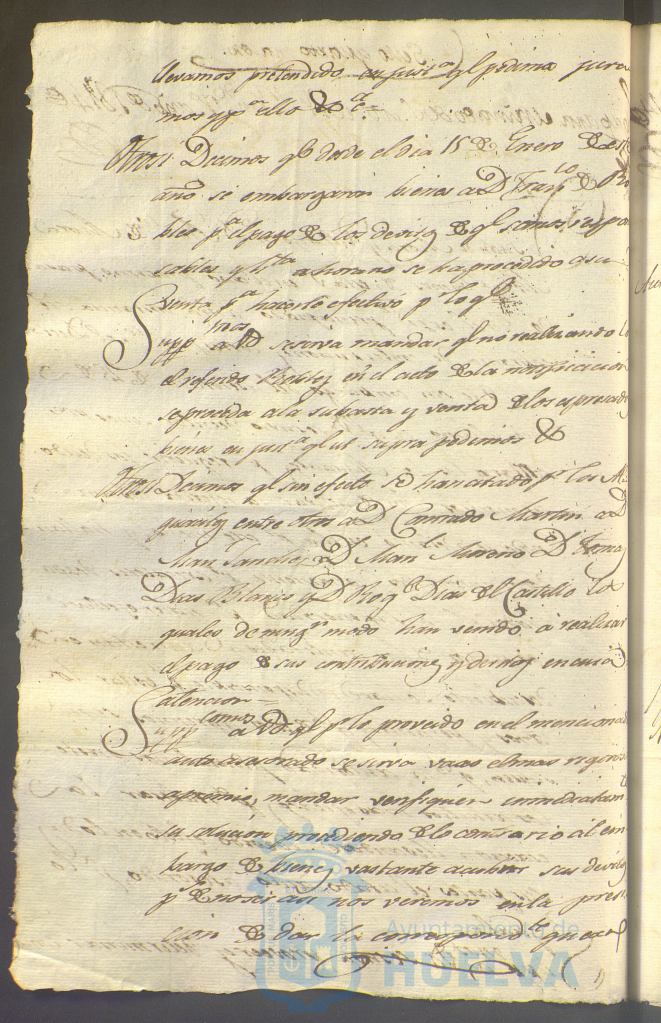 llevamos pretendido en just.ª q.l pedimos jura
mos y p.ª ello &c.ª
Otrosi Decimos q.e desde el dia 15 de Enero de est
año se embargaron bienes a D.n Fran.co de Ro
bles p.ª el pago de los deviz.s de q.l somos respon
sables y h.ta ahora no se ha procedido a su
venta p.ª hacerlo efectivo p.r lo q.l
Supp.mos a VD. se sirva mandar q.l no realizando lo
el referido Robles en el acto de la notificacion
se proceda a la subasta y venta de los expresados
bienes en just.ª q.l ut supra pedimos &
Otrosi Decimos q.l sin efecto se han citado p.r los Al
guaciles entre otros a D.n Conrado Martin a D.n
Man.l Sanchez a D.n Man.l Moreno D.n
Dias Blanco y D.n Roq.e Dias del Castillo los
quales de ning.n modo han venido a realizar
el pago de sus contribuciones y devitos en cuia
atencion
Supp.camos a VD. q.l p.r lo proveido en el mencionad
auto asesorado se sirva vajo el mas rigoroso
apremio, mandar verifiquen inmediatam.te
su solucion procediendo de lo contrario al em
bargo de bienes vastante a cubrir sus devitos
p.s de no ser asi nos veremos en la preci
sion de dar la correspond.te quexa
Ayuntamiento de
HUELVA